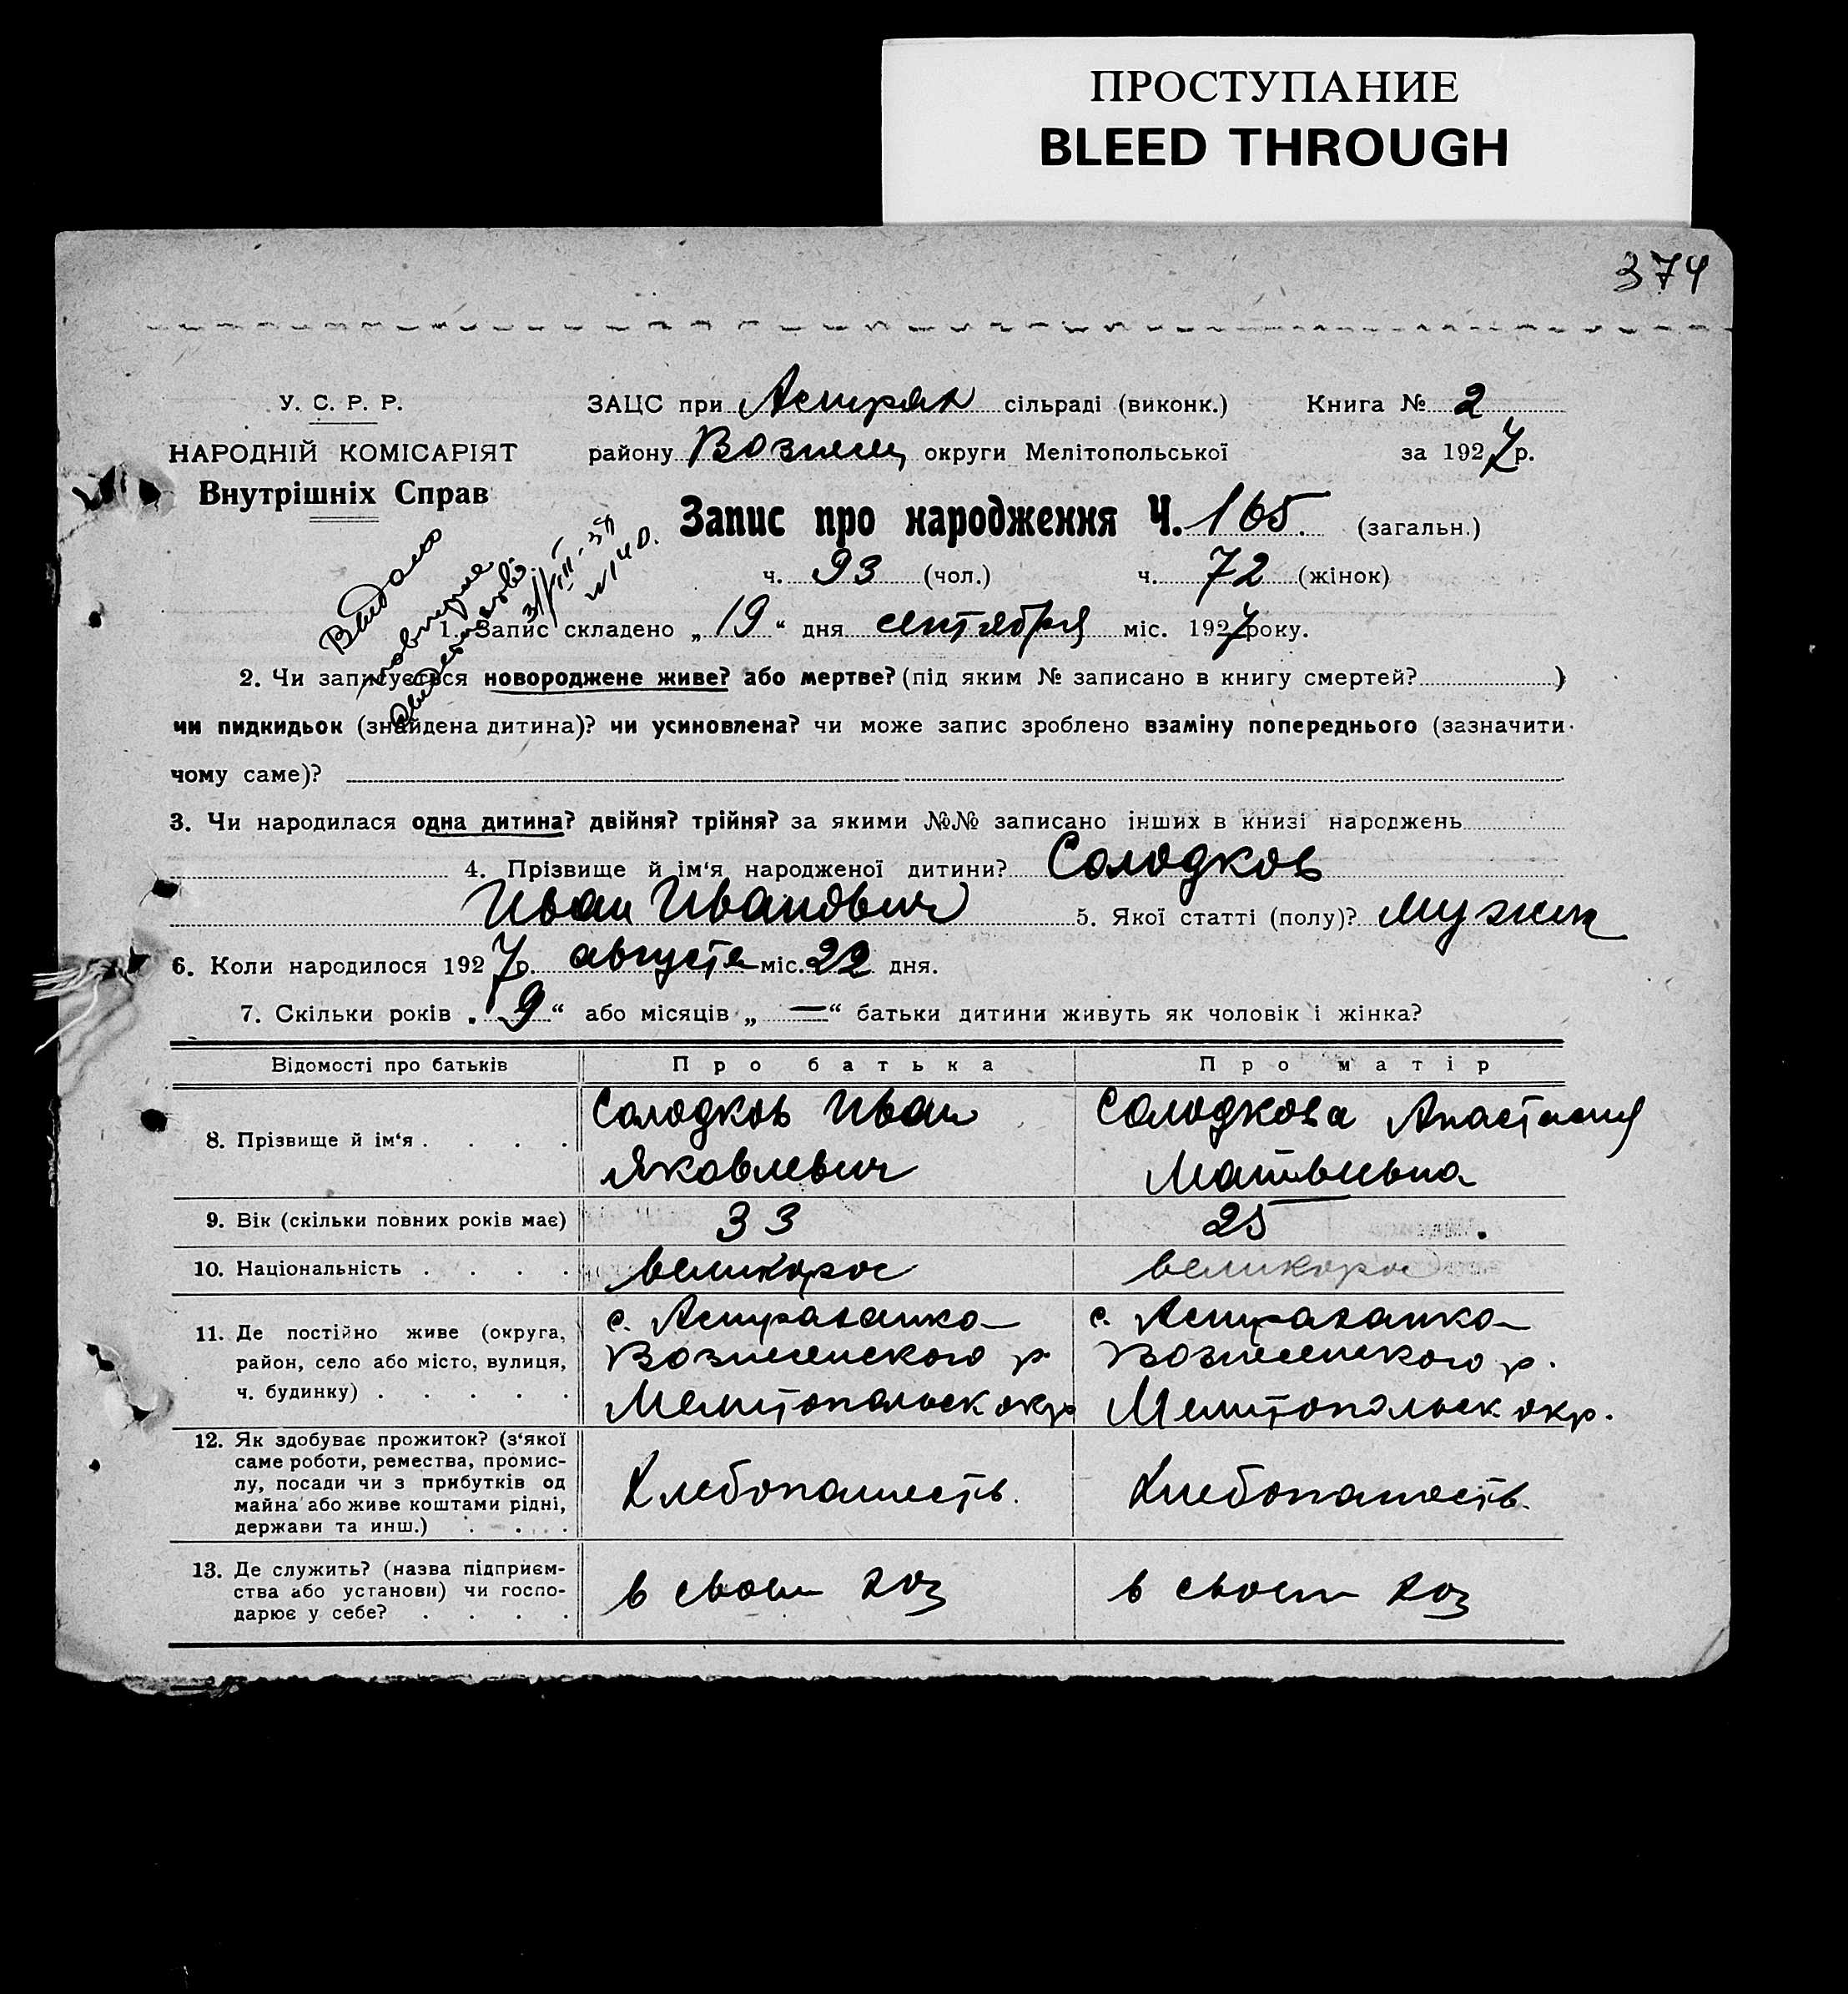 ПРОСТУПАНИЕ
BLEED THROUGH
374
У. С. Р. Р.
НАРОДНІЙ КОМІСАРІЯТ
Внутрішніх Справ
ЗАЦС при Астрах сільраді (виконк.) Книга № 2
району Вознесен округи Мелітопольської за 1927 р.
Запис про народження Ч. 165. (загальн.)
ч. 93 (чол.) ч. 72 (жінок)
Выдано
повторне
31/VIII-39
№ 140.
1. Запис складено „19“ дня сентября міс. 1927 року.
2. Чи записується новороджене живе? або мертве? (під яким № записано в книгу смертей? )
чи пидкидьок (знайдена дитина)? чи усиновлена? чи може запис зроблено взаміну попереднього (зазначити
чому саме)?
3. Чи народилася одна дитина? двійня? трійня? за якими №№ записано інших в книзі народжень
4. Прізвище й ім‘я народженої дитини? Солодков
Иван Иванович 5. Якої статті (полу)? мужск
6. Коли народилося 1927 р. августа міс. 22 дня.
7. Скільки років „9“ або місяців „—“ батьки дитини живуть як чоловік і жінка?
Відомості про батьків Про батька Про матір
8. Прізвище й ім‘я . . . . Солодков Иван Яковлевич Солодкова Анастасия Матвеевна
9. Вік (скільки повних років має) 33 25
10. Національність . . . . великорос великорос
11. Де постійно живе (округа,
район, село або місто, вулиця,
ч. будинку) . . . . .
с. Астраханка
Вознесенского р.
Мелитопольск окр
с. Астраханка
Вознесенского р.
Мелитопольск окр.
12. Як здобуває прожиток? (з‘якої
саме роботи, ремества, промис-
лу, посади чи з прибутків од
майна або живе коштами рідні,
держави та инш.) . . . .
Хлебопашеств.
Хлебопашеств.
13. Де служить? (назва підприєм-
ства або установи) чи госпо-
дарює у себе? . . . .
в своем хоз
в своем хоз